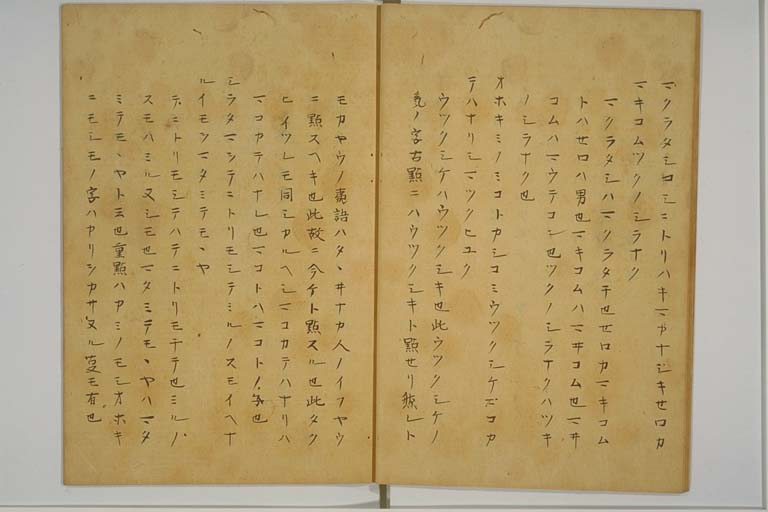 マクラタシコシニトリハキマカナシキセロカ
マキコムツクノシラナク
マクラタシハマクラタチ也セロカマキコム
トハセロハ男也マキコムハマヰコム也マヰ
コムハマウテコン也ツクノシラナクハツキ
ノシラナク也
オホキミノミコトカシコミウツクシケマコカ
テハナリシマツタヒユク
ウツクシケハウツクシキ也此ウツクシケノ
ノ字古點ニハウツクシキト點セリ然レト
モカヤウノ夷語ハタヽヰナカ人ノイフヤウ
ニ點スヘキ也此故ニ今ケト點スル也此タク
ヒイツレモ同シカルヘシマコカテハナリハ
マコカテハナレ也マコトハマコトノ也
シラタマヲテニトリモシテミルノスモイヘナ
ルイモヲマタミテモヽヤ
テニトリモシテハテニトリモチテ也ミルノ
スモハミル又シモ也マタミテモヽヤハマタ
ミテモヽヤト云也重點ハカミノモシオホキ
ニモシモノ字ハカリヲカサヌル夏モ有也